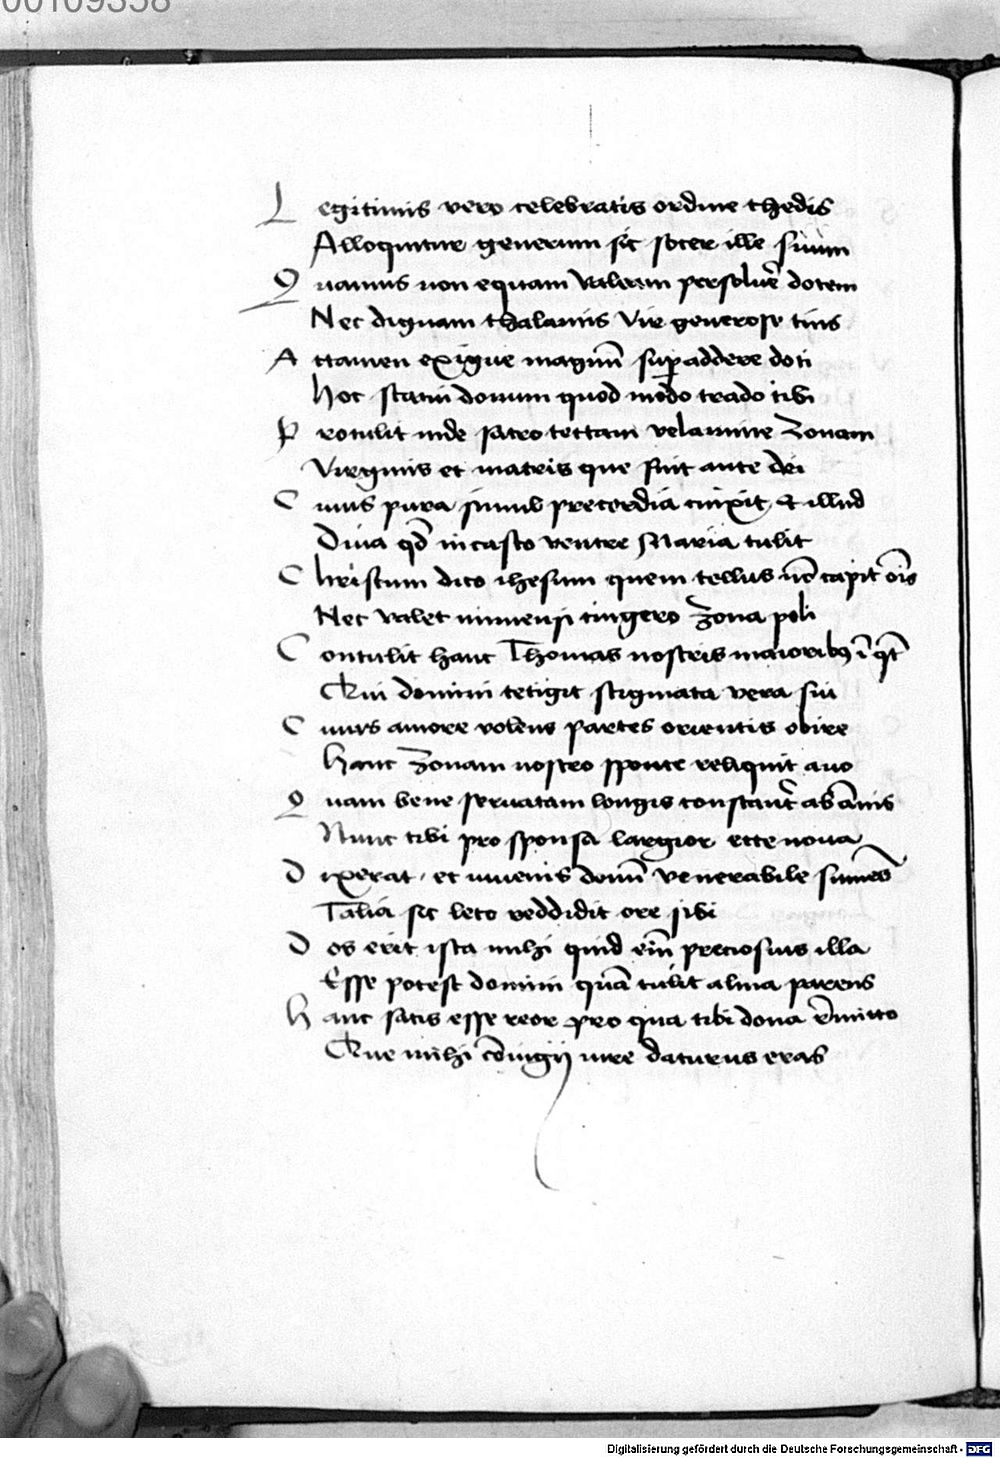 00109358
Legitimis vero celebratis ordine thedis
Alloquitur generum sic socer ille suum
Quamuis non equam valeam persoluẽ dotem
Nec dignam thalamis Vir generose tuis
Attamen exigue magnũ superaddere doti
Hoc statui donum quod modo trado tibi
Protulit inde sacro tectam velamine Zonam
Virginis et matris que fuit ante dei
Cuius pura simul precordia cinxit & illud
Diua qđ in casto ventre Maria tulit
Christum dico ihesum quem tellus nõ capit oĩs
Nec valet immensi cingere Zona poli
Contulit hanc Thomas nostris maioribꝫ
Qui domini tetigit stigmata vera sui
Cuius amore volens partes orientis obire
Hanc Zonam nostro sponte reliquit auo
Quam bene seruatam longis constant̃ ab ãnis
Nunc tibi pro sponsa largior ecce noua
Dixerat, et iuuenis donũ venerabile sumẽs
Talia sic leto reddidit ore sibi
Dos erit ista mihi quid eĩn preciosius illa
Esse potest domini quã tulit alma parens
Hanc satis esse reor pro qua tibi dona r̃emitto
Que mihi cõiugij iure daturus eras
Digitalisierung gefördert durch die Deutsche Forschungsgemeinschaft - DFG